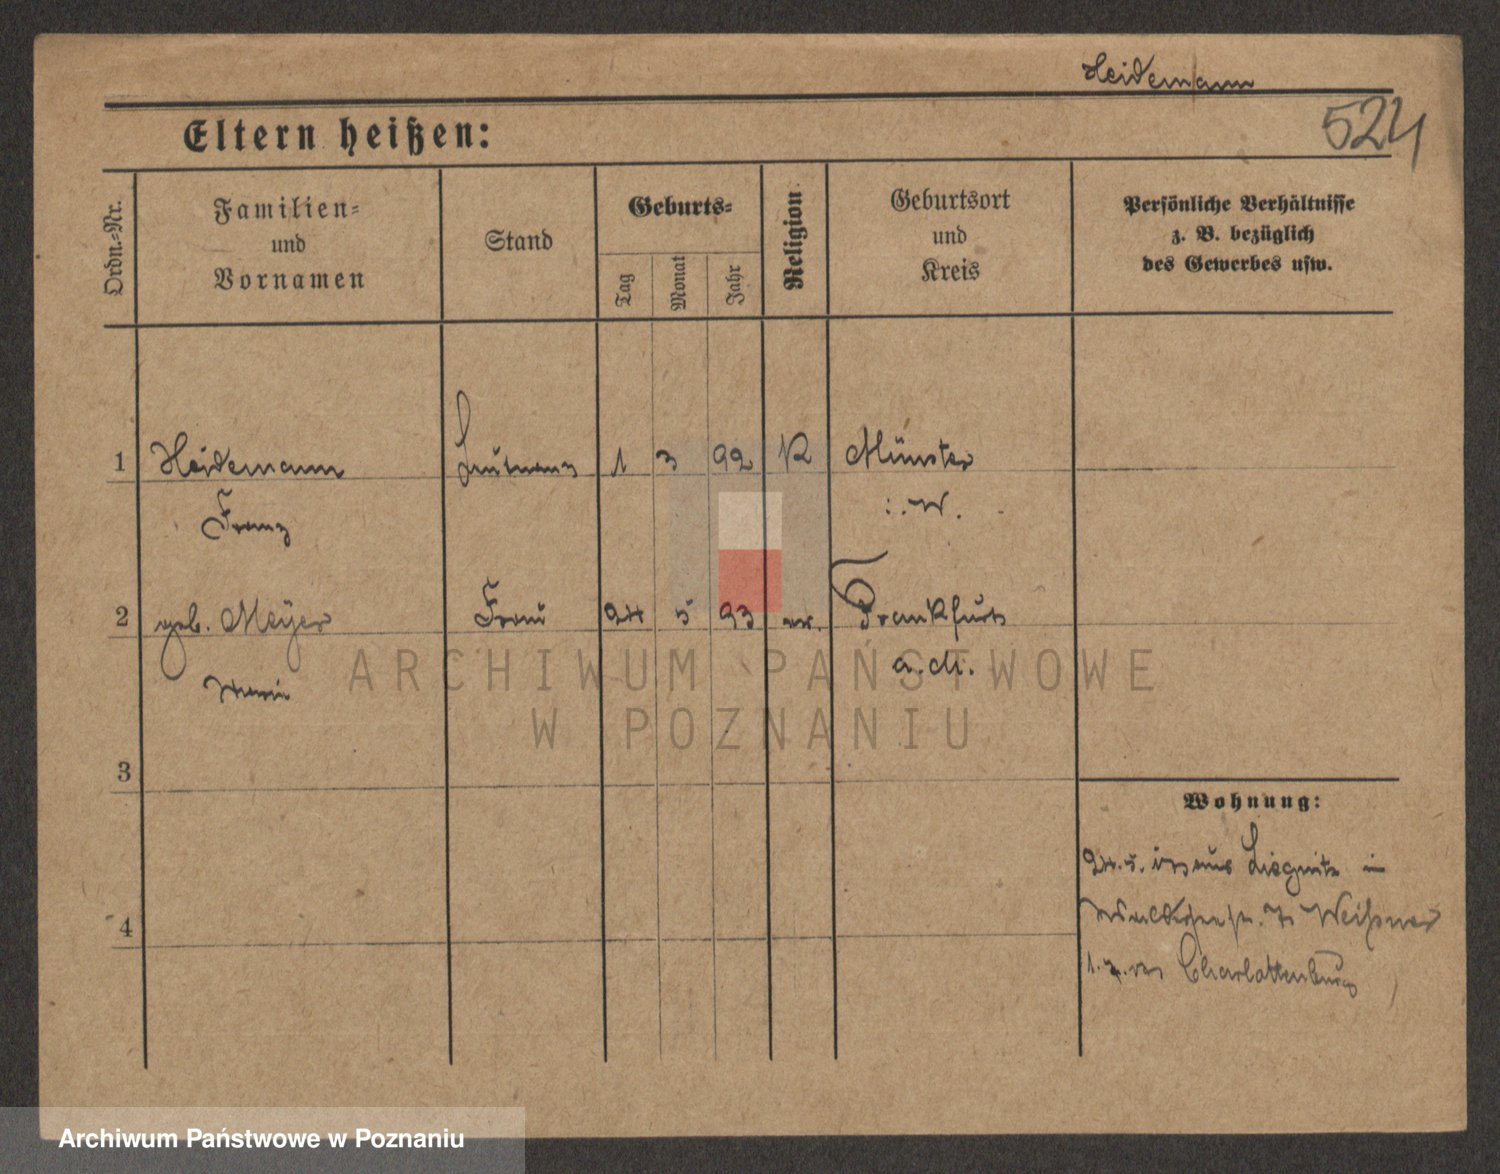 Heidemann
524
Eltern heißen:
Ordn.-Nr.
Familien-
und
Vornamen
Stand
Geburts-
Tag
Monat
Jahr
Religion
Geburtsort
und
Kreis
Persönliche Verhältnisse
z. B. bezüglich
des Gewerbes usw.
1 Heidemann 1 3 92 K Münster
Franz i. W.
2 geb. Meÿer Frau 24 5 93 ev. Frankfurt
Marie a. M.
3
4
Wohnung:
24. 5. aus Liegnitz in
Weißner
1. Charlottenburg
ARCHIWUM PAŃSTWOWE
W POZNANIU
Archiwum Państwowe w Poznaniu